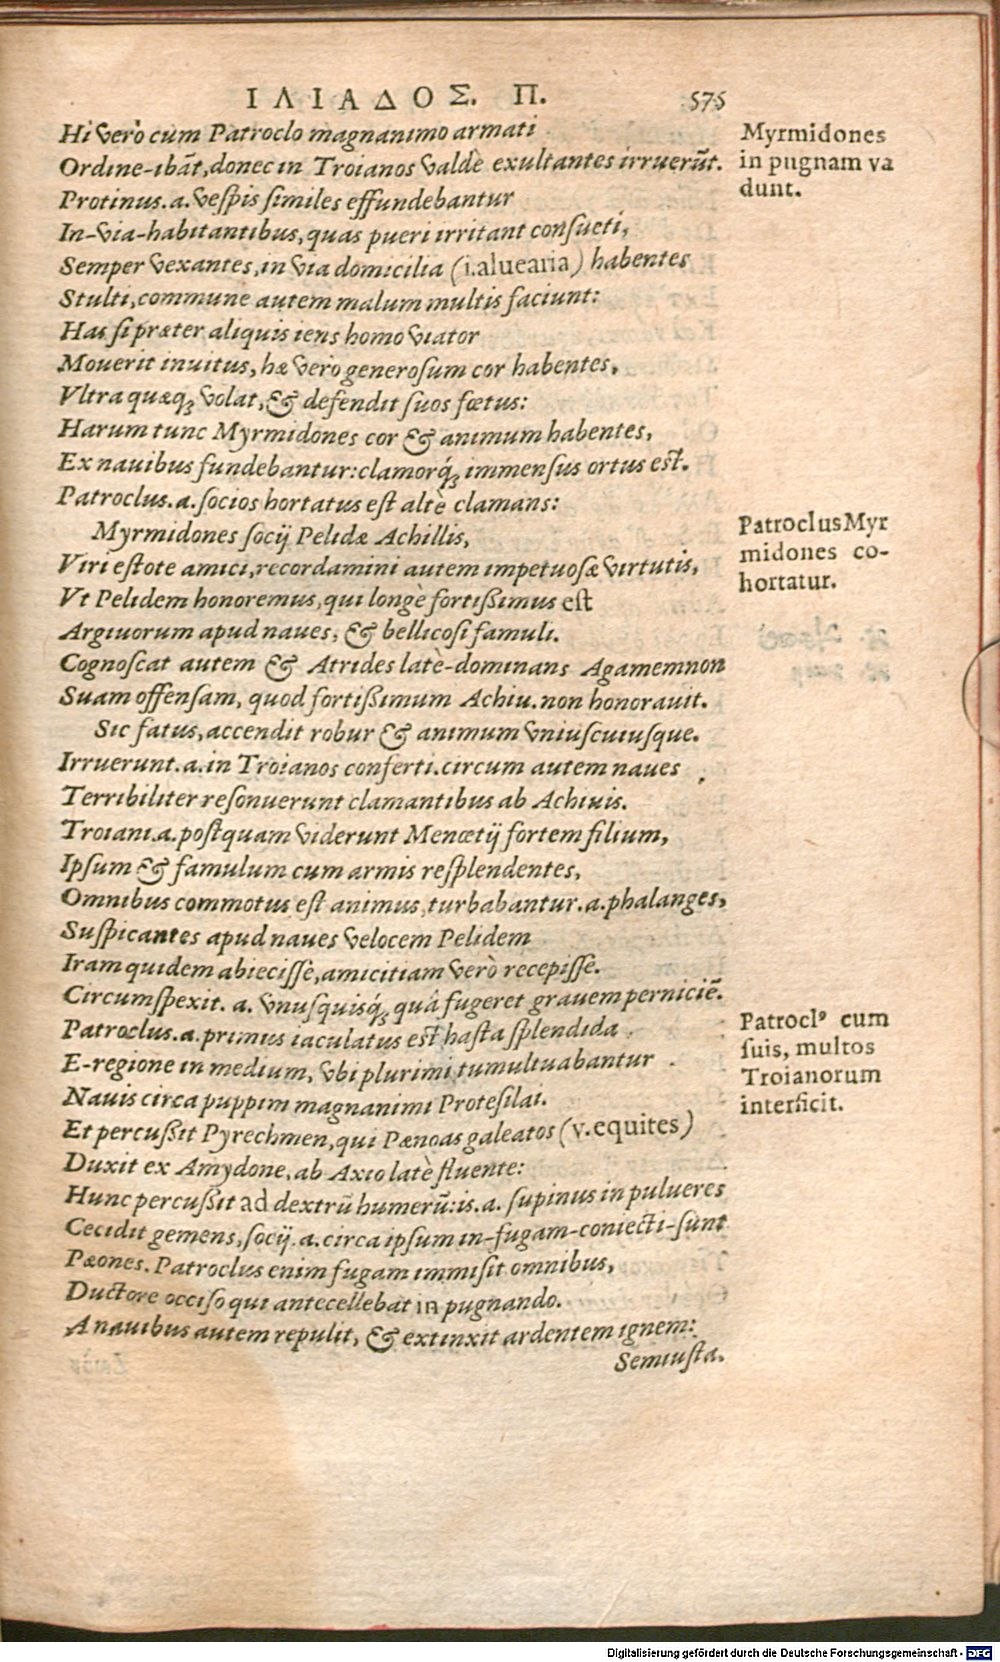 ΙΛΙΑΔΟΣ. Π. 575
Hi verò cum Patroclo magnanimo armati
Ordine-ibāt, donec in Troianos valdè exultantes irruerūt.
Protinus .a. vespis similes effundebantur
In-via-habitantibus, quas pueri irritant consueti,
Semper vexantes, in via domicilia (i. aluearia) habentes
Stulti, commune autem malum multis faciunt:
Has si præter aliquis iens homo viator
Mouerit inuitus, hæ vero generosum cor habentes,
Vltra quæq; volat, & defendit suos fœtus:
Harum tunc Myrmidones cor & animum habentes,
Ex nauibus fundebantur: clamorq́; immensus ortus est.
Patroclus .a. socios hortatus est altè clamans:
Myrmidones socij Pelidæ Achillis,
Viri estote amici, recordamini autem impetuosæ virtutis,
Vt Pelidem honoremus, qui longè fortißimus est
Argiuorum apud naues, & bellicosi famuli.
Cognoscat autem & Atrides latè-dominans Agamemnon
Suam offensam, quod fortißimum Achiu. non honorauit.
Sic fatus, accendit robur & animum vniuscuiusque.
Irruerunt .a. in Troianos conferti. circum autem naues
Terribiliter resonuerunt clamantibus ab Achiuis.
Troiani .a. postquam viderunt Menœtij fortem filium,
Ipsum & famulum cum armis resplendentes,
Omnibus commotus est animus, turbabantur .a. phalanges,
Suspicantes apud naues velocem Pelidem
Iram quidem abiecisse, amicitiam verò recepisse.
Circumspexit .a. vnusquisq́; quà fugeret grauem perniciē.
Patroclus .a. primus iaculatus est hasta splendida
E-regione in medium, vbi plurimi tumultuabantur
Nauis circa puppim magnanimi Protesilai.
Et percußit Pyrechmen, qui Pæonas galeatos (v. equites)
Duxit ex Amydone, ab Axio latè fluente:
Hunc percußit ad dextrū humerū: is .a. supinus in pulueres
Cecidit gemens, socij .a. circa ipsum in-fugam-coniecti-sunt
Pæones. Patroclus enim fugam immisit omnibus,
Ductore occiso qui antecellebat in pugnando.
A nauibus autem repulit, & extinxit ardentem ignem:
Semiusta.
Myrmidones
in pugnam va
dunt.
Patroclus Myr
midones co-
hortatur.
Patroclꝰ cum
suis, multos
Troianorum
interficit.
Digitalisierung gefördert durch die Deutsche Forschungsgemeinschaft - DFG